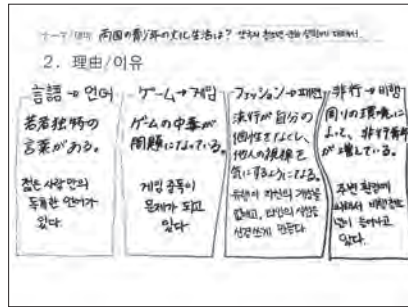 テーマ/테마 両国の青少年の文化生活は? 양국의 청소년 문화 생활에 대해서!
2. 理由/이유
言語→언어
若者独特の
言葉がある。
젊은 사람만의
독특한 언어가
있다.
ゲーム→게임
ゲームの中毒が
問題になっている。
게임 중독이
문제가 되고
있다
ファッション→패션
流行が自分の
個性をなくし、
他人の視線を
気にするようになる。
유행이 자신의 개성을
없애고, 타인의 시선을
신경쓰게 만든다.
非行→비행
周りの環境に
よって、非行青少年
が増している。
주변 환경에
따라서 비행청소
년이 늘어나고
있다.